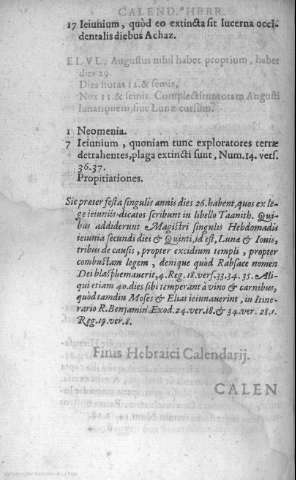 CALEND. HEBR.
17 Ieiunium, quòd eo extincta sit lucerna occi-
dentalis diebus Achaz.
ELVL. Augustus nihil habet proprium, habet
dies 29.
Dies horas 12. & semis,
Nox 11. & semis. Complectitur totam Augusti
lunationem, siue Lunæ cursum.
1 Neomenia.
7 Ieiunium, quoniam tunc exploratores terræ
detrahentes, plaga extincti sunt, Num. 14. vers.
36. 37.
Propitiationes.
Sic præter festa singulis annis dies 26. habent, quos ex le-
ge ieiuniis dicatos scribunt in libello Taanith. Qui-
bus addiderunt Magistri singulis Hebdomadis
ieiunia secundi diei & Quinti, id est, Lunæ & Iouis,
tribus de causis, propter excidium templi, propter
combustam legem, denique quòd Rabsace nomen
Dei blasphemauerit, 4. Reg. 18. vers. 33. 34. 35. Ali-
qui etiam 40. dies sibi temperant à vino & carnibus,
quòd tamdiu Moses & Elias ieiunauerint, in Itine-
rario R. Beniamin. Exod. 24. ver. 18. & 34. ver. 28. 1.
Reg. 19. ver. 8.
Finis Hebraici Calendarij.
CALEN